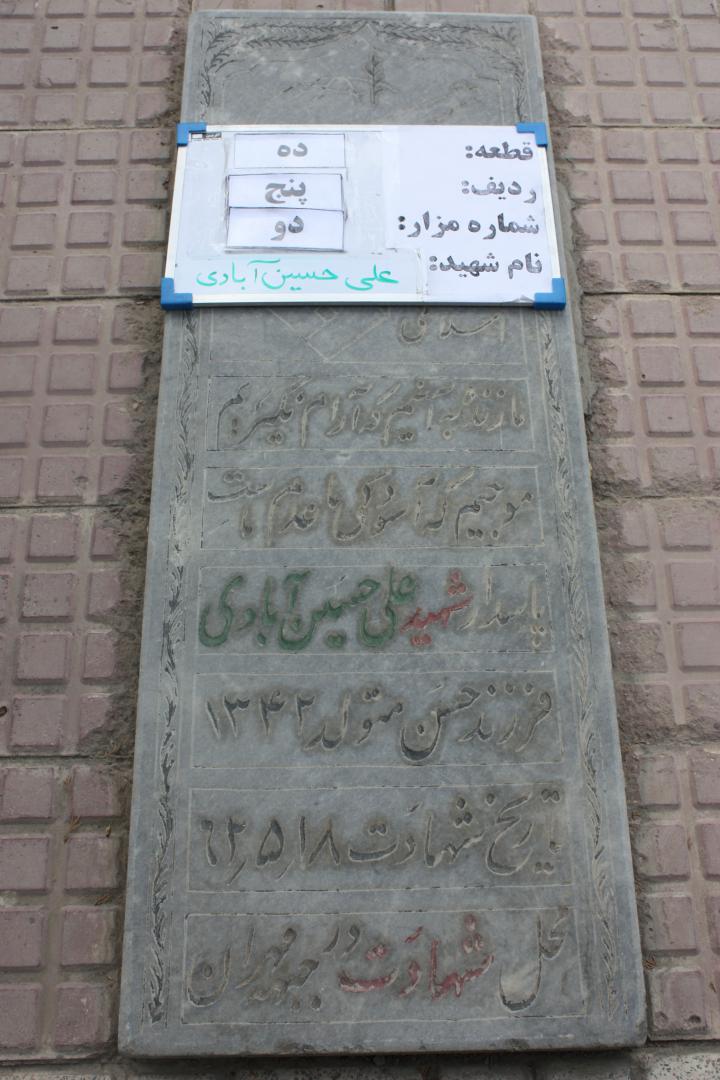 قطعه: ده
ردیف: پنج
شماره مزار: دو
نام شهید: علی حسین آبادی
اسلامی
ما زنده به آنیم که آرام نگیریم
موجیم که آسودگی ما عدم ماست
پاسدار شهید علی حسین آبادی
فرزند حسن متولد ۱۳۴۲
تاریخ شهادت ۶۲٫۵٫۱۸
محل شهادت در جبهه مهران